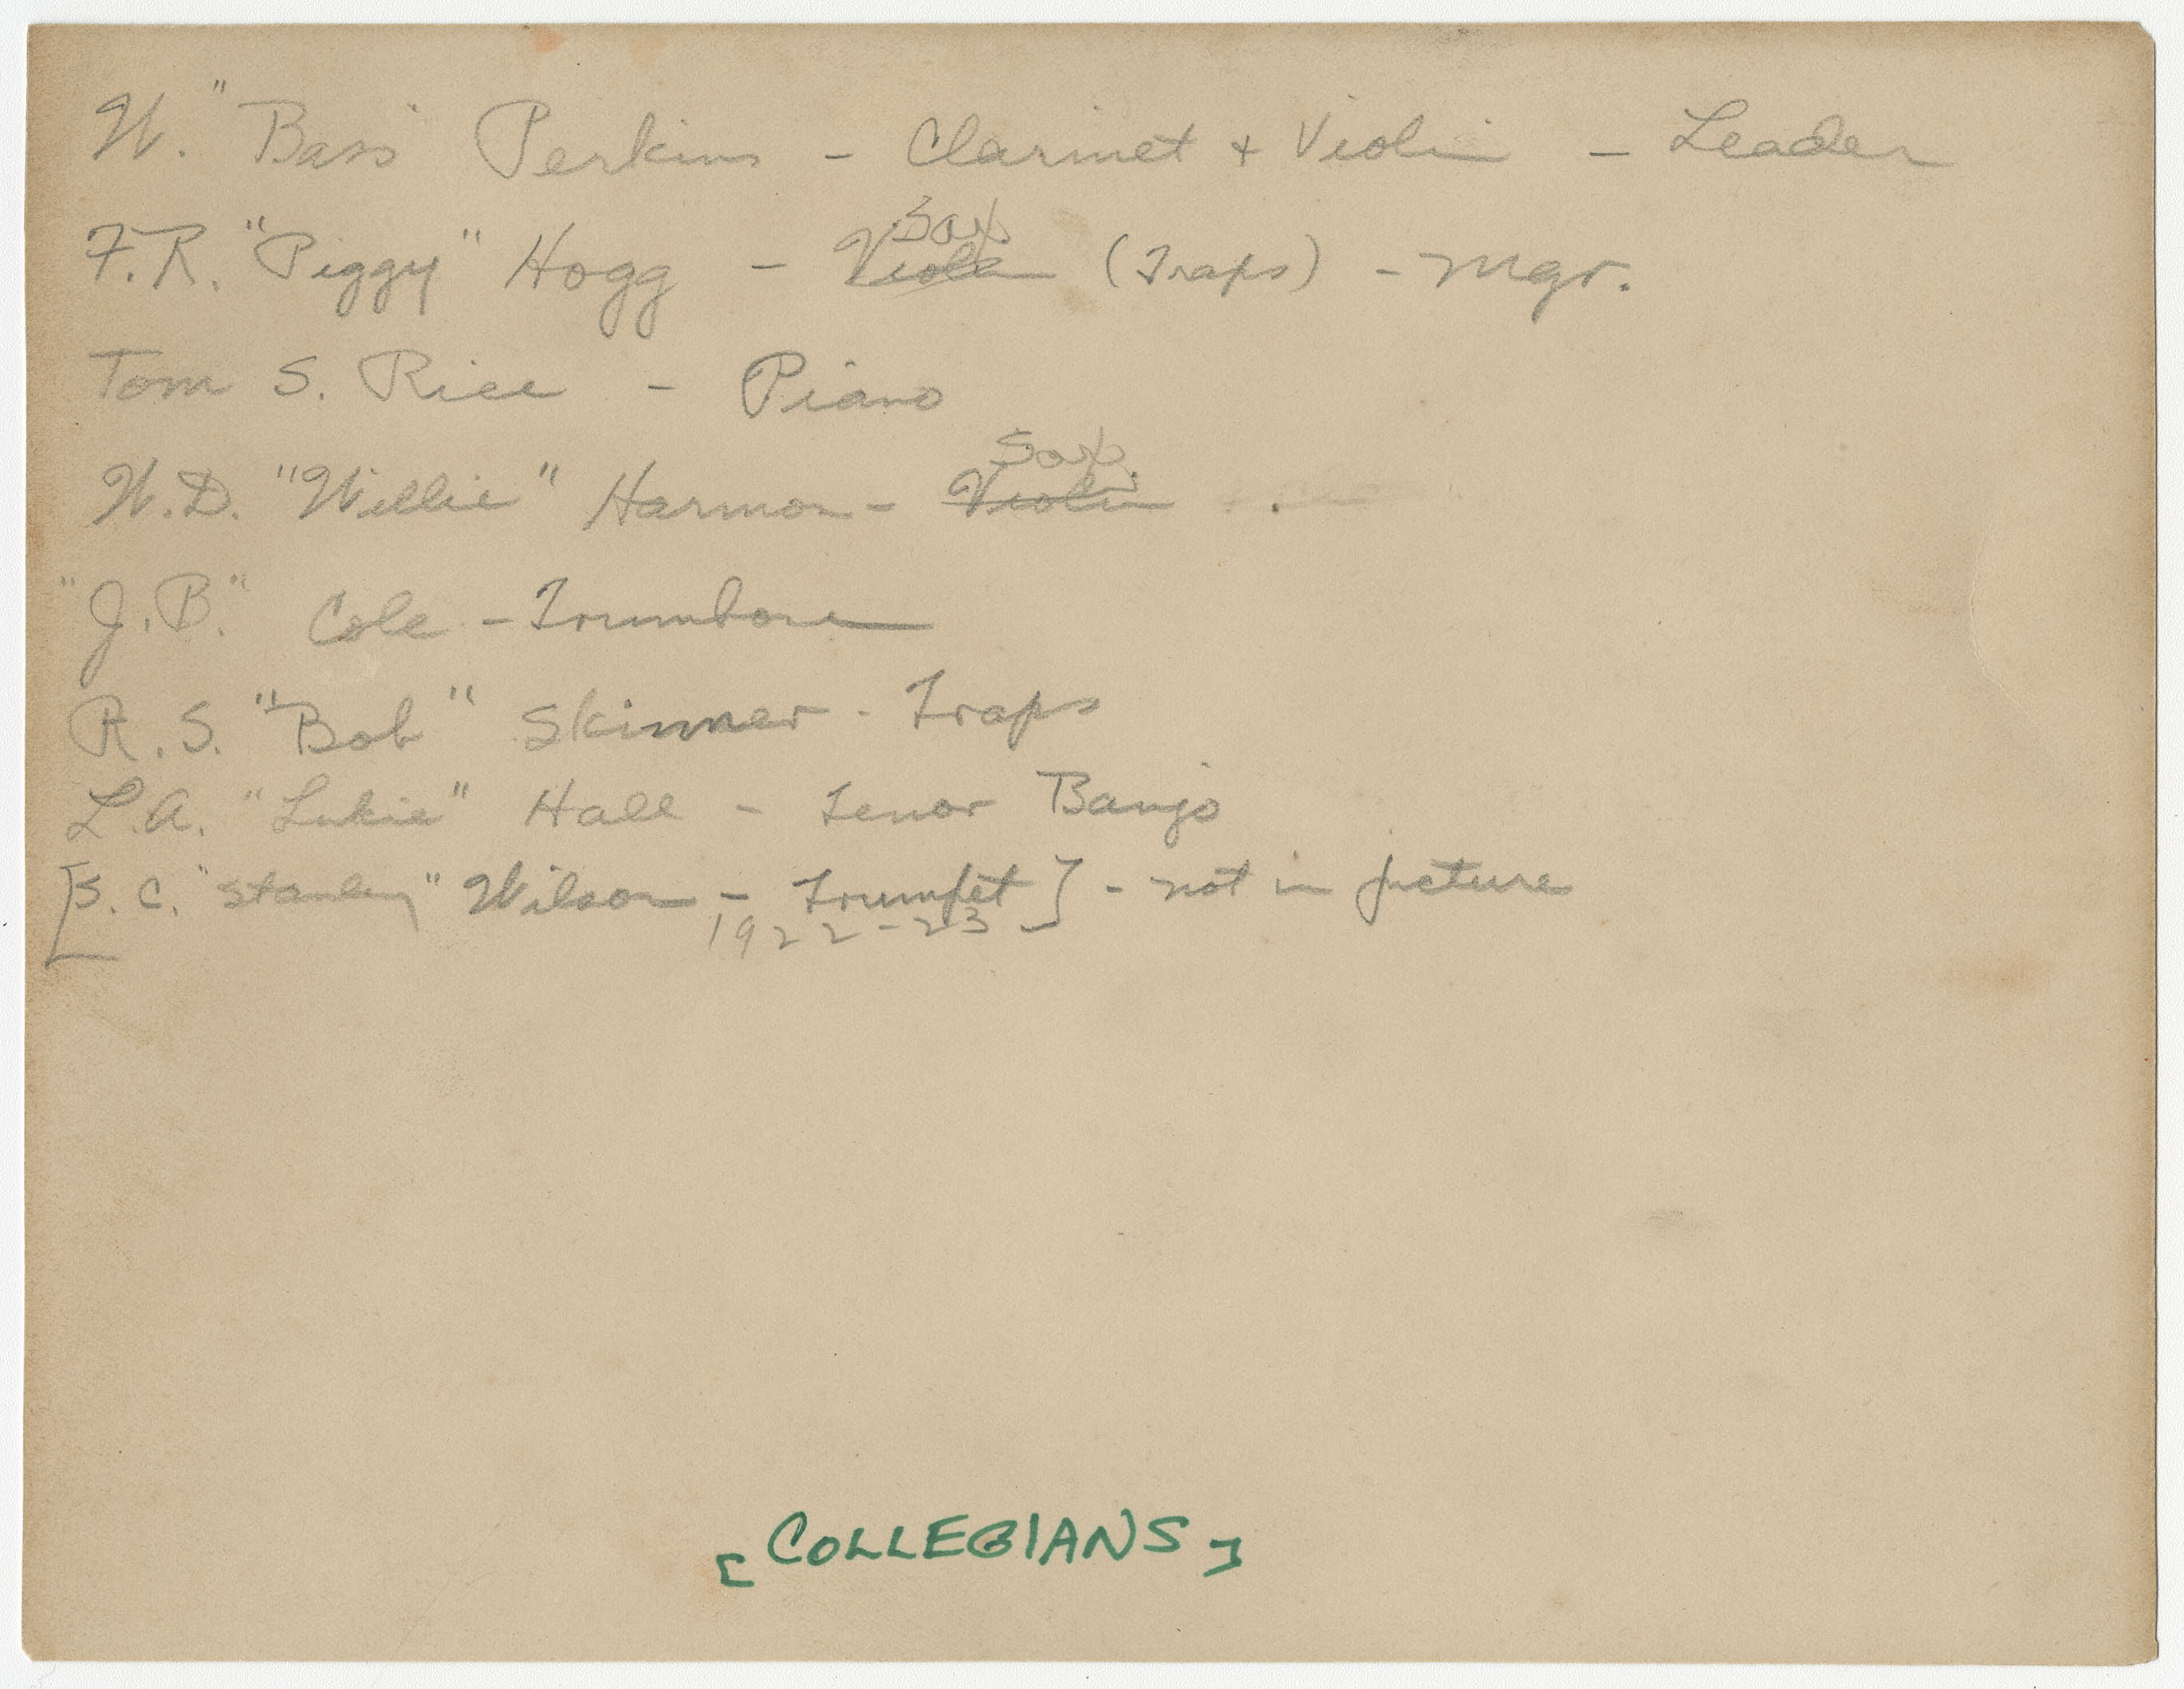 W. "Bass" Perkins - Clarinet + Violin - Leader
Sax
F.R. "Piggy" Hogg - Viola (Traps) - Mgr.
Tom S. Rice - Piano
Sax
W.D. "Willie" Harmon - Violin
"J.B." Cole - Trumbone
R.S. "Bob" Skinner - Traps
L.A. "Lukie" Hall - Tenor Banjo
[S. C. "Stanley" Wilson - Trumpet] - not in picture
1922-23
[COLLEGIANS]